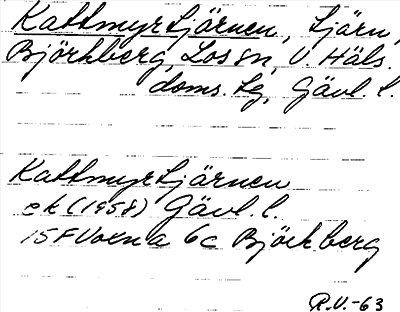 Kattmyrtjärnen, tjärn,
Björkberg, Los sn, V. Häls.
doms. tg, Gävl. l.
Kattmyrtjärnen
ek (1958) Gävl. l.
15F Voxna 6c Björkberg
R.V.-63